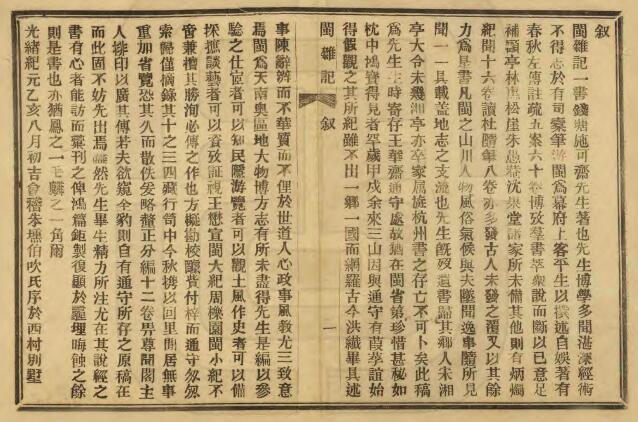 叙
閩雜記一書錢塘施可齋先生著也先生博學多聞湛深經術
不得志於有司橐筆游閩爲幕府上客平生以撰述自娛著有
春秋左傳註疏五案六十卷博攷羣書萃衆說而斷以已意足
補顧亭林惠松崖朱愚菴沈果堂諸家所未備其他則有炳燭
紀聞十六卷讀杜隨筆八卷亦多發古人未發之覆又以其餘
力爲是書凡閩之山川人物風俗氣候與夫軼聞逸事隨所見
聞一一具載蓋地志之支流也先生旣歿遺書歸其鄉人朱湘
亭大令未幾湘亭亦卒家屬旋杭州書之存亡不可卜矣此稿
爲先生在時寄存王華齋通守處故猶在閩省第珍惜甚秘如
枕中鴻寶得見者罕歲甲戍余來三山因與通守有葭莩誼始
得假觀之其所紀雖不出一鄉一國而網羅古今洪纖畢具述
閩雜記 叙 一
事陳辭濟而不華質而不俚於世道人心政事風敎尤三致意
焉閩爲天南奧區地大物博方志有所未盡得先生是編以參
驗之仕宦者可以知民隱游覽者可以觀土風作史者可以備
採摭談藝者可以資攷証視王懋宣閩大紀周櫟園閩小紀不
啻兼擅其勝洵必傳之作也方擬勸校讎貲付梓而通守匆匆
索歸僅摘錄其十之三四藏行笥中今秋携以回里閒居無事
重加省覽恐其久而散佚爰略釐正分編十二卷畀尊聞閣主
人排印以廣其傳若夫欲窺全豹則自有通守所存之原稿在
而此固不妨先出焉雖然先生畢生精力所注尤在其說經之
書有心者能訪而彙刊之俾鴻篇鉅製復顯於塵堙晦蝕之餘
則是書也亦猶鳳之一毛麟之一角爾
光緒紀元乙亥八月初吉會稽來壎伯吹氏序於西村別墅